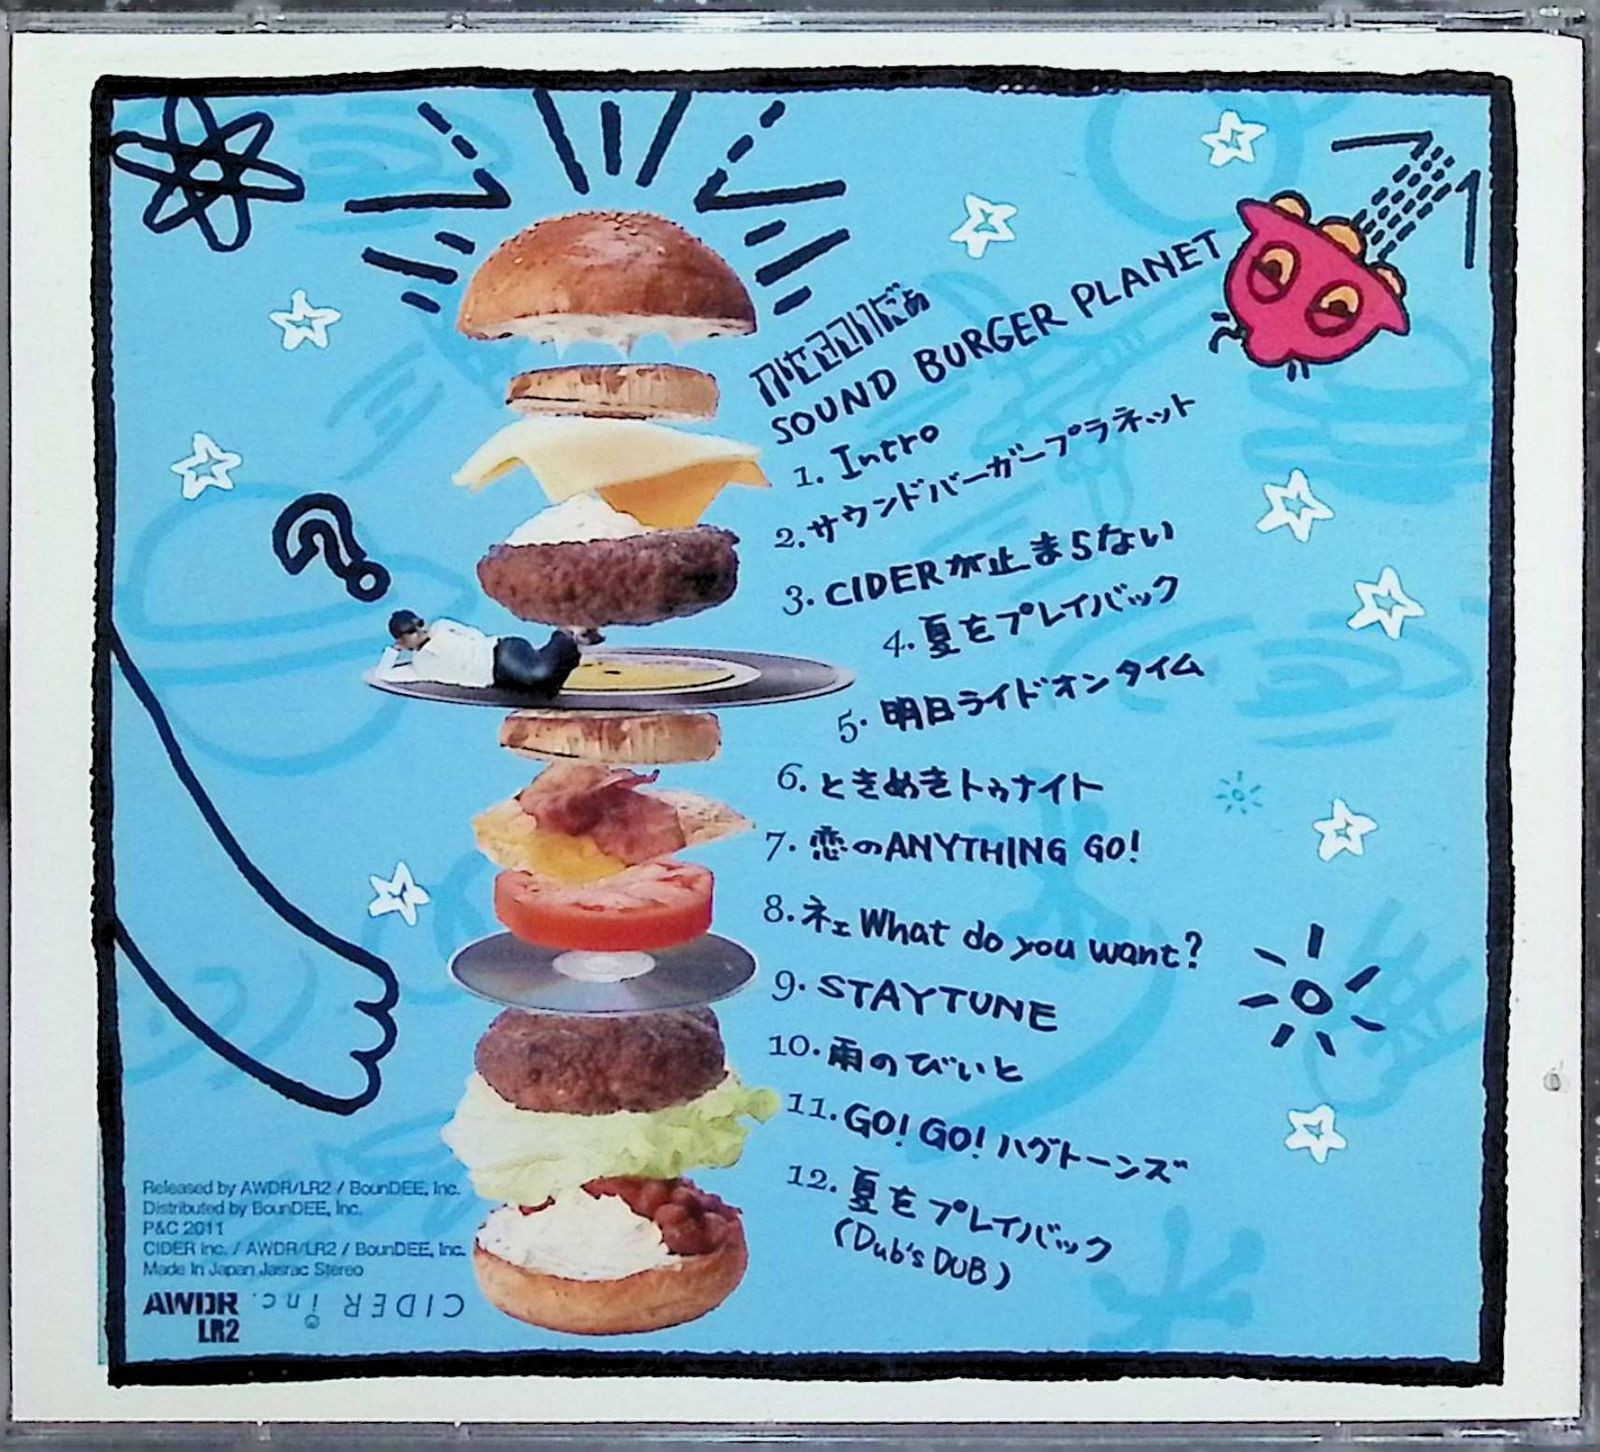 SOUND BURGER PLANET
1. Intro
2. サウンドバーガープラネット
3. CIDERが止まらない
4. 夏をプレイバック
5. 明日ライドオンタイム
6. ときめきトゥナイト
7. 恋のANYTHING GO!
8. ネェ What do you want?
9. STAYTUNE
10. 雨のびいと
11. GO! GO! ハグトーンズ
12. 夏をプレイバック
(Dub's DUB)
Released by AWDR/LR2 / BounDEE, Inc.
Distributed by BounDEE, Inc.
P&C 2011
CIDER inc. / AWDR/LR2 / BounDEE, Inc.
Made In Japan Jasrac Stereo
AWDR
LR2
CIDER inc.